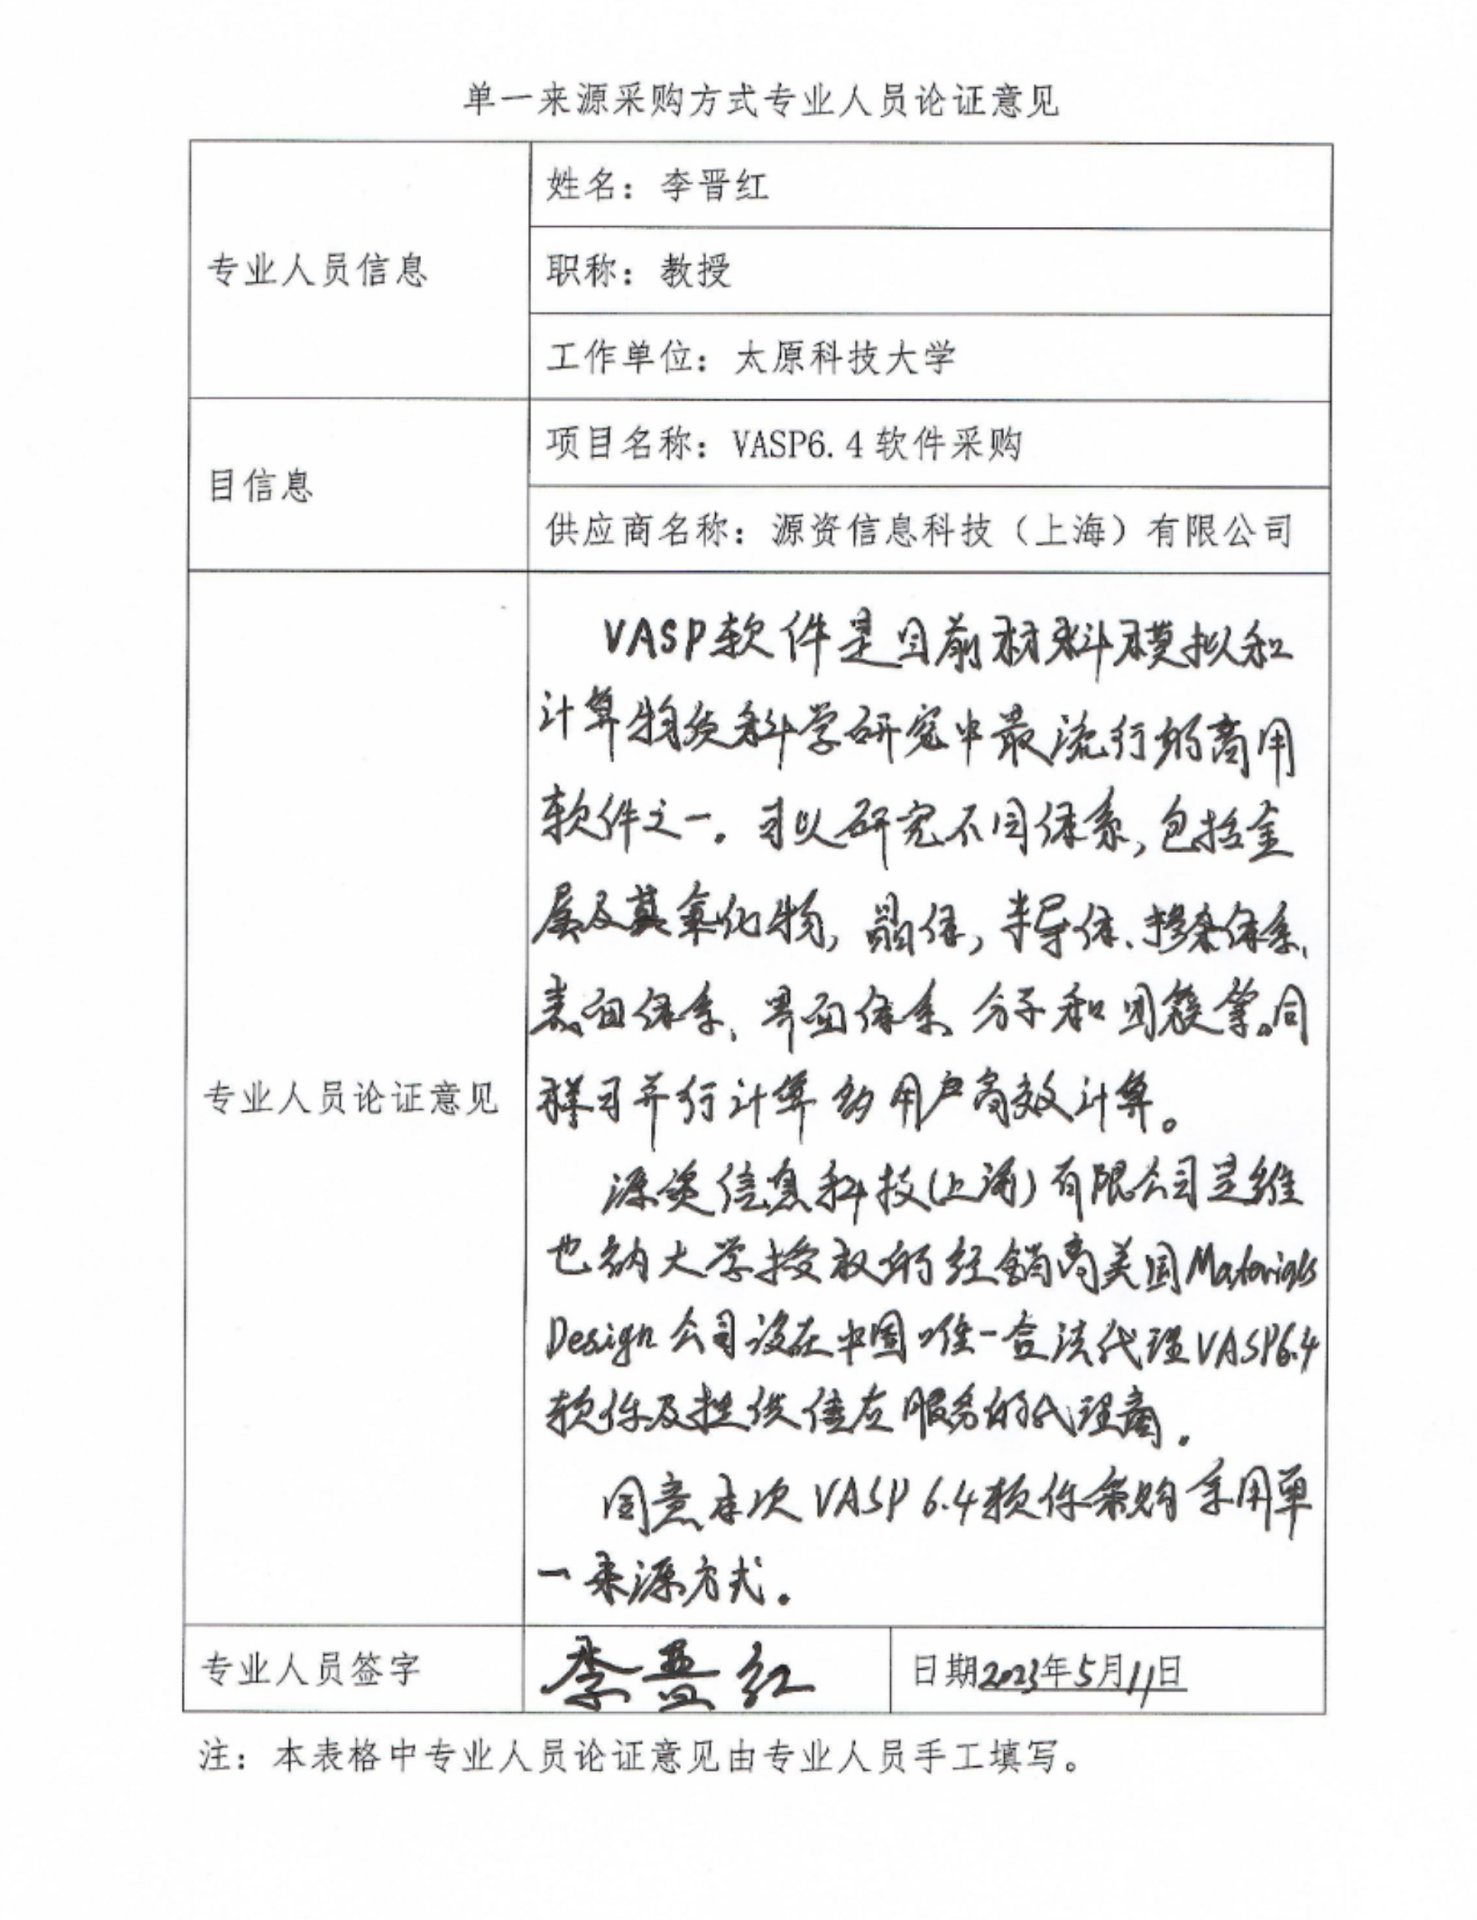 单一来源采购方式专业人员论证意见
专业人员信息
姓名：李晋红
职称：教授
工作单位：太原科技大学
目信息
项目名称：VASP6.4软件采购
供应商名称：源资信息科技（上海）有限公司
专业人员论证意见
VASP软件是目前材料模拟和
计算物质科学研究中最流行的商用
软件之一。可以研究不同体系，包括金
属及其氧化物，晶体，半导体、掺杂体系、
表面体系、界面体系、分子和团簇等。同
样可并行计算的用户高效计算。
源资信息科技(上海)有限公司是维
也纳大学授权的经销商美国Materials
Design公司设在中国唯一合法代理VASP6.4
软件及提供售后服务的代理商。
同意本次VASP6.4软件采购采用单
一来源方式。
专业人员签字
李晋红
日期2023年5月11日
注：本表格中专业人员论证意见由专业人员手工填写。